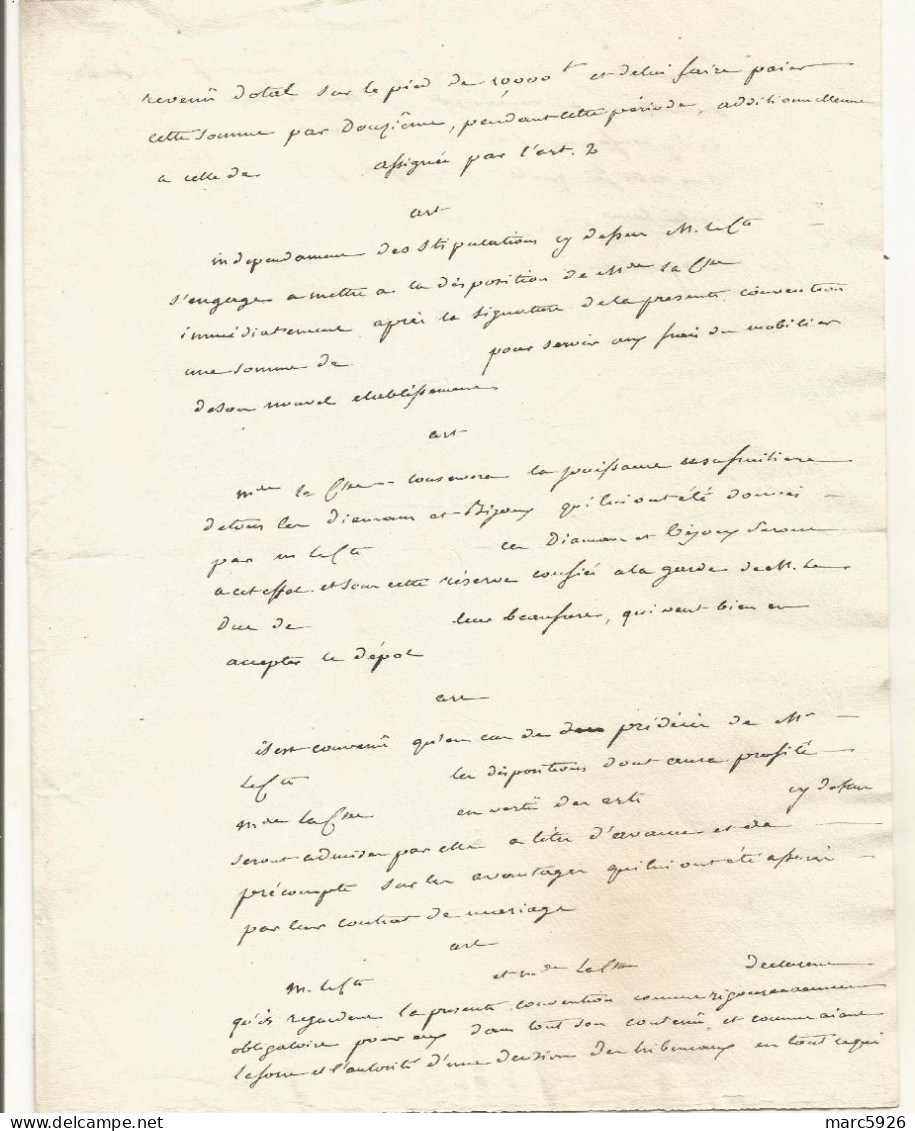 revenû dotal sur le pied de 10000# et de lui faire paier
cette somme par Douzième, pendant cette période, additionnellement
a celle de assignée par l'art. 2
art
independament des Stipulations cy dessus M. le Cte
s'engage a mettre a la disposition de Mde la Csse
immédiatement après la signature de la presente convention
une somme de pour servir aux frais du mobilier
de son nouvel etablissement
art
Mde la Csse conservera la jouissance usufruitiere
de tous les Diamans et Bijoux qui lui ont été donnés
par M le Cte ces Diamans et bijoux seront
a cet effet et sous cette réserve confiés a la garde de M. le
Duc de leur beaufrere, qui veut bien en
accepter le dépot
art
il est convenû qu'en cas de prédécès de Mr
le Cte les dispositions dont aura profité
Mde la Csse en vertû des arts cy dessus
seront admises par elle a titre d'avance et de
précompte sur les avantages qui lui ont été assurés
par leur contrat de mariage
art
M. le Cte et Mde la Csse declarent
qu'ils regardent la presente convention comme rigoureusement
obligatoire pour eux dans tout son contenû, et comme aiant
la force et l'autorité d'une decision des tribunaux en tout ce qui
marc5926